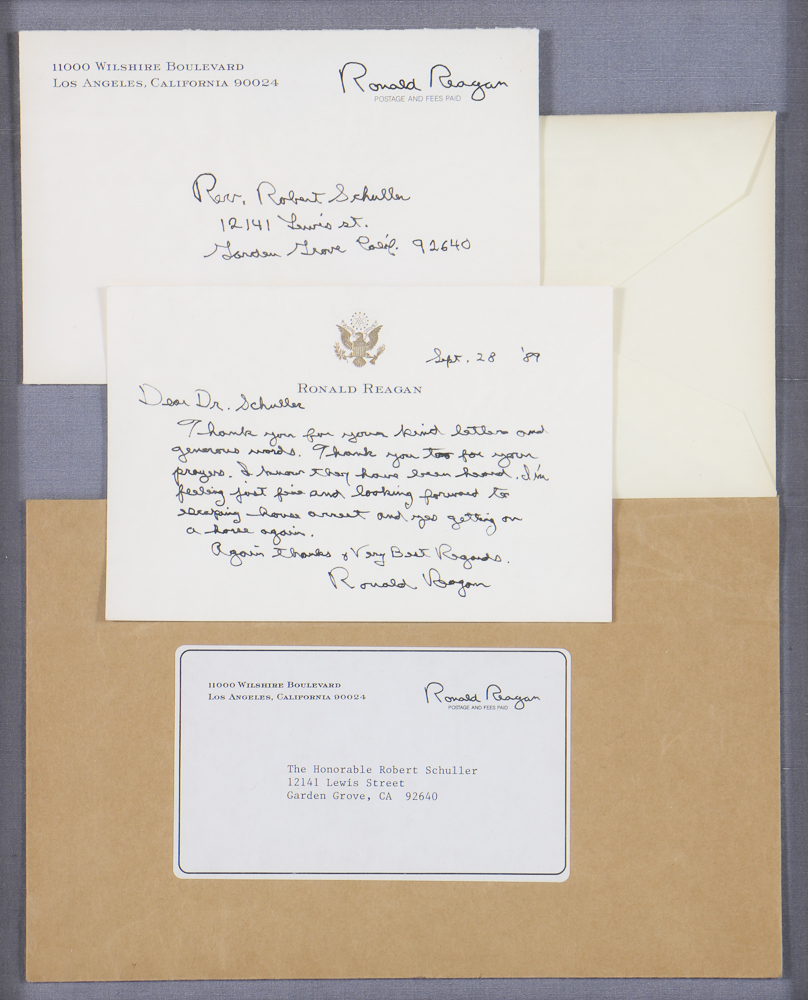 11000 WILSHIRE BOULEVARD
LOS ANGELES, CALIFORNIA 90024
Ronald Reagan
POSTAGE AND FEES PAID
Rev. Robert Schuller
12141 Lewis st.
Garden Grove Calif. 92640
Sept. 28 '89
RONALD REAGAN
Dear Dr. Schuller
Thank you for your kind letter and
generous words. Thank you too for your
prayers. I know they have been heard. I'm
feeling just fine and looking forward to
escaping house arrest and yes getting on
a horse again.
Again thanks & Very Best Regards.
Ronald Reagan
11000 WILSHIRE BOULEVARD
LOS ANGELES, CALIFORNIA 90024
Ronald Reagan
POSTAGE AND FEES PAID
The Honorable Robert Schuller
12141 Lewis Street
Garden Grove, CA 92640